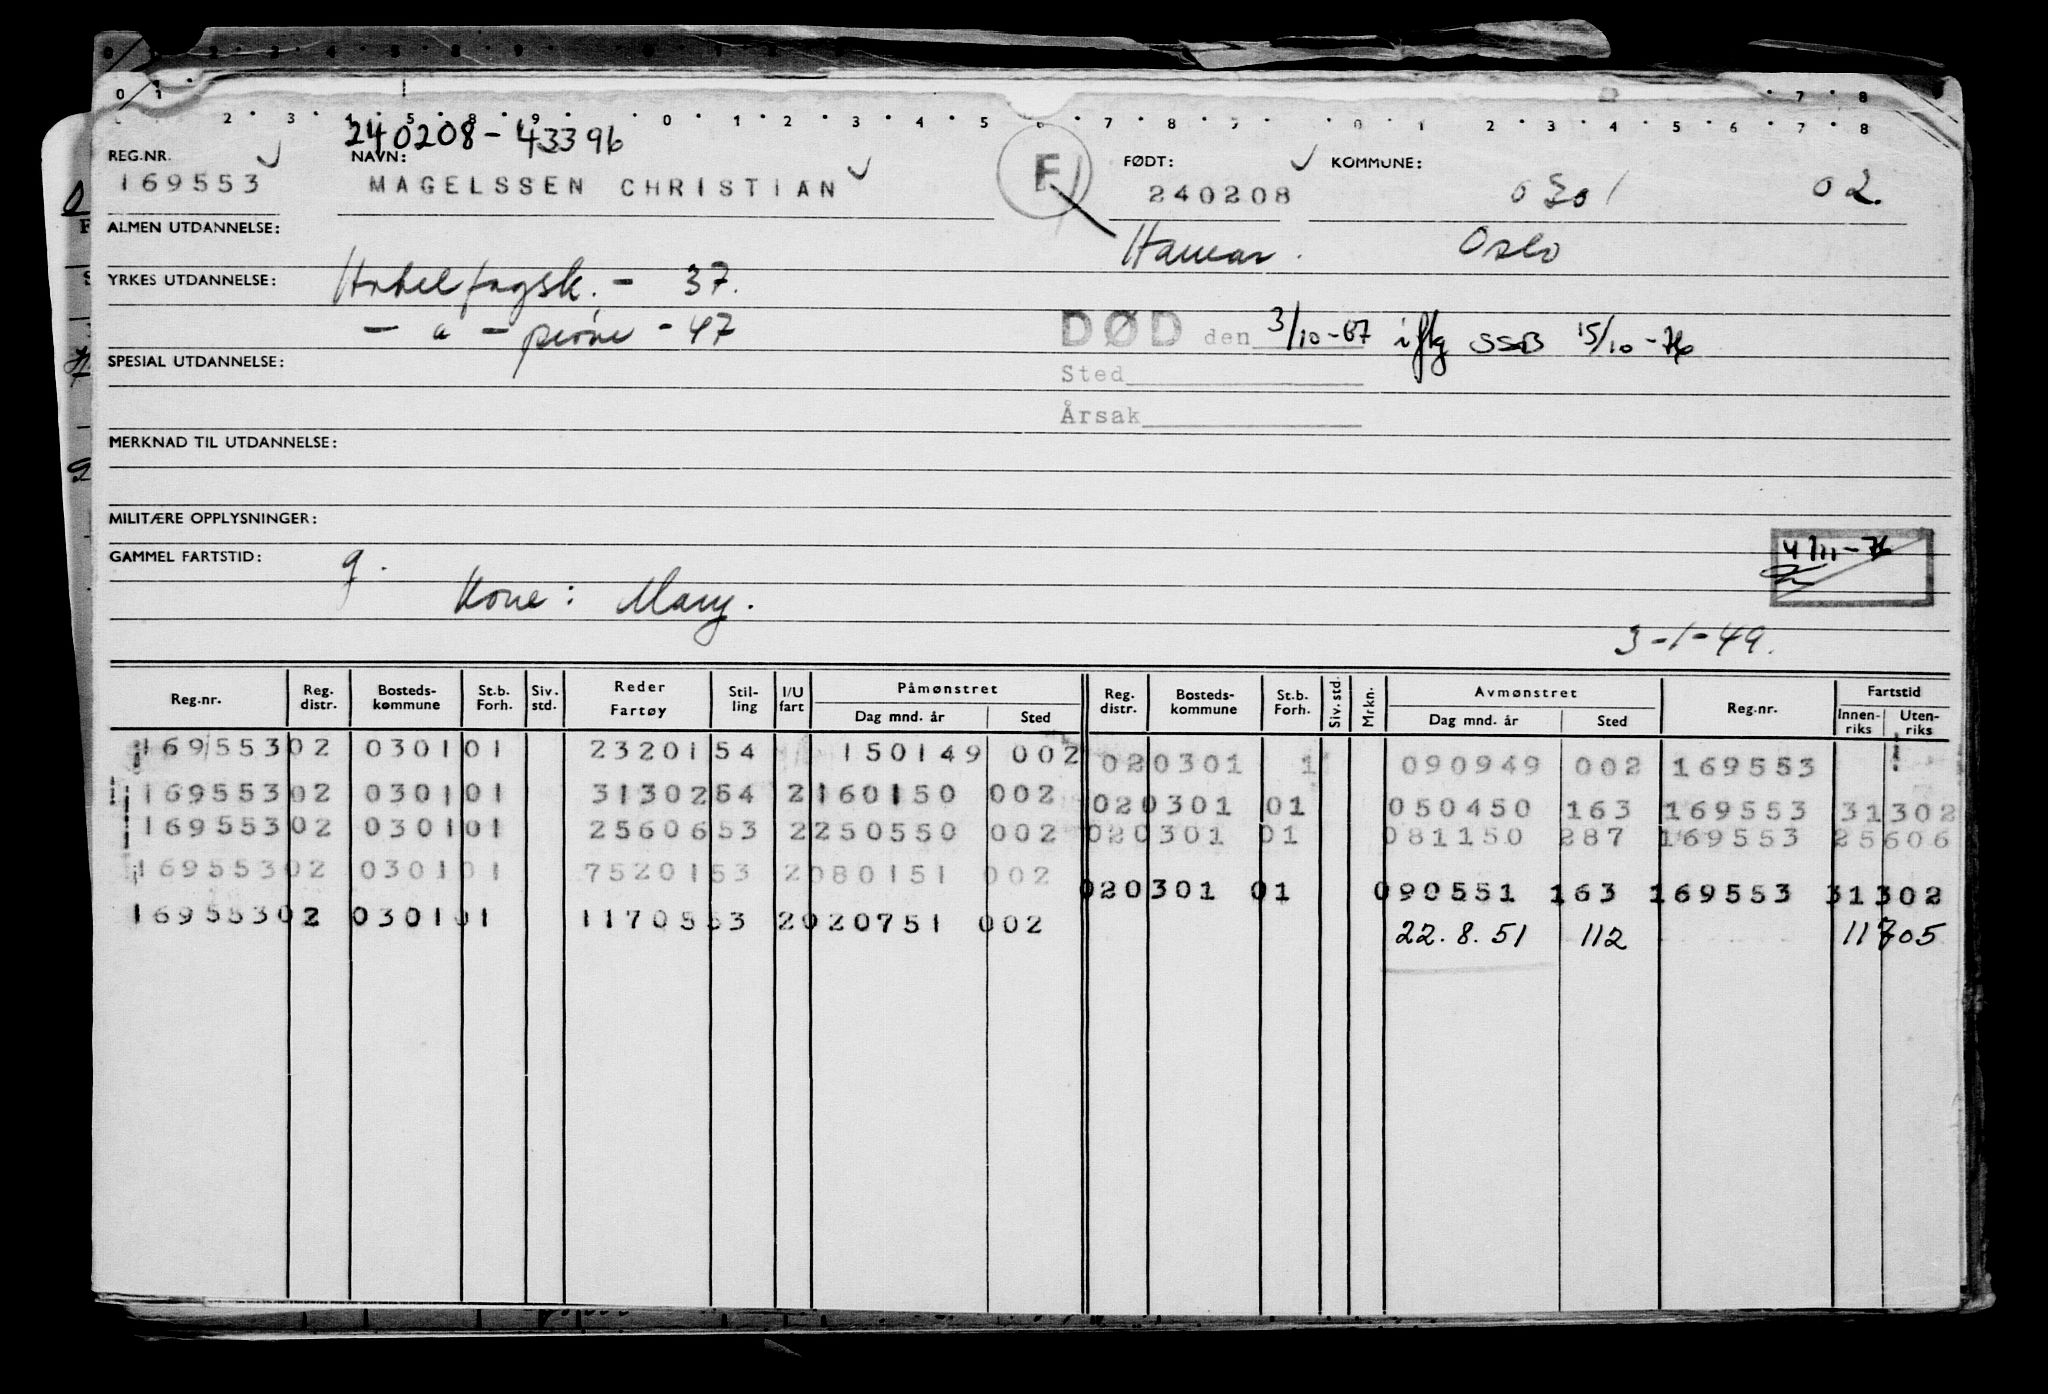 240208-43396
REG.NR. NAVN: FØDT: KOMMUNE:
169553 MAGELSSEN CHRISTIAN F 240208 0301 02.
ALMEN UTDANNELSE: Hamar. Oslo
YRKES UTDANNELSE: Hotelfagsk. - 37.
- " - prøve - 47
DØD den 3/10-67 iflg SSB 15/10-76
SPESIAL UTDANNELSE:
Sted
Årsak
MERKNAD TIL UTDANNELSE:
MILITÆRE OPPLYSNINGER:
4/11-76
GAMMEL FARTSTID: g.
Kone: Mary.
3-1-49.
Reg.nr. Reg. distr. Bosteds-kommune St.b. Forh. Siv. std. Reder Fartøy Stil-ling I/U fart Påmønstret Dag mnd. år Sted Reg. distr. Bosteds-kommune St.b. Forh. Siv. std. Mrkn. Avmønstret Dag mnd. år Sted Reg.nr. Fartstid Innen-riks Uten-riks
169553 02 0301 01 23201 54 150149 002 02 0301 1 090949 002 169553
169553 02 0301 01 31302 54 2 160150 002 02 0301 01 050450 163 169553 31302
169553 02 0301 01 25606 53 2 250550 002 02 0301 01 081150 287 169553 25606
169553 02 0301 01 75201 53 2 080151 002 02 0301 01 090551 163 169553 31302
169553 02 0301 01 11705 53 2 020751 002 22.8.51 112 11705